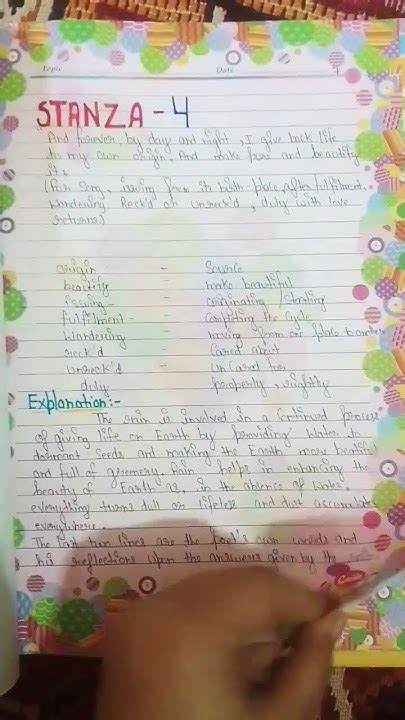 Topic Date
STANZA - 4
"And forever, by day and night, I give back life
to my own origin, And make pure and beautify
it;
(For Song, issuing from its birth-place after fulfilment,
wandering Reck'd or unreck'd, duly with love
returns)
origin - Source
beautify - make beautiful
issuing - originating / Starting
fulfilment - Completing the Cycle
Wandering - moving from one place to another
reck'd - Cared about
unreck'd - UnCared for
duly - properly, rightly
Explanation:-
The rain is involved in a Continued process
of giving life on Earth by providing Water to
dormant Seeds and making the Earth more beautiful
and full of greenery. Rain helps in enhancing the
beauty of Earth as, in the absence of Water,
everything turns dull or lifeless and dust accumulates
everywhere.
The last two lines are the poet's own words and
his reflections upon the answers given by the